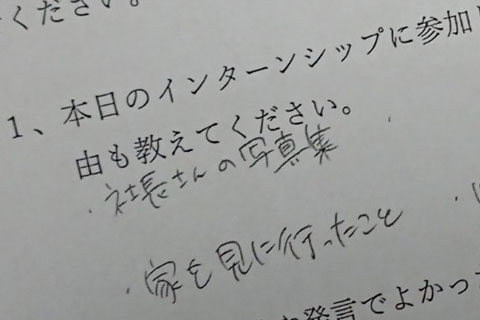 ください。
1、本日のインターンシップに参加
由も教えてください。
・社長さんの写真集
・家を見に行ったこと
発言でよかっ